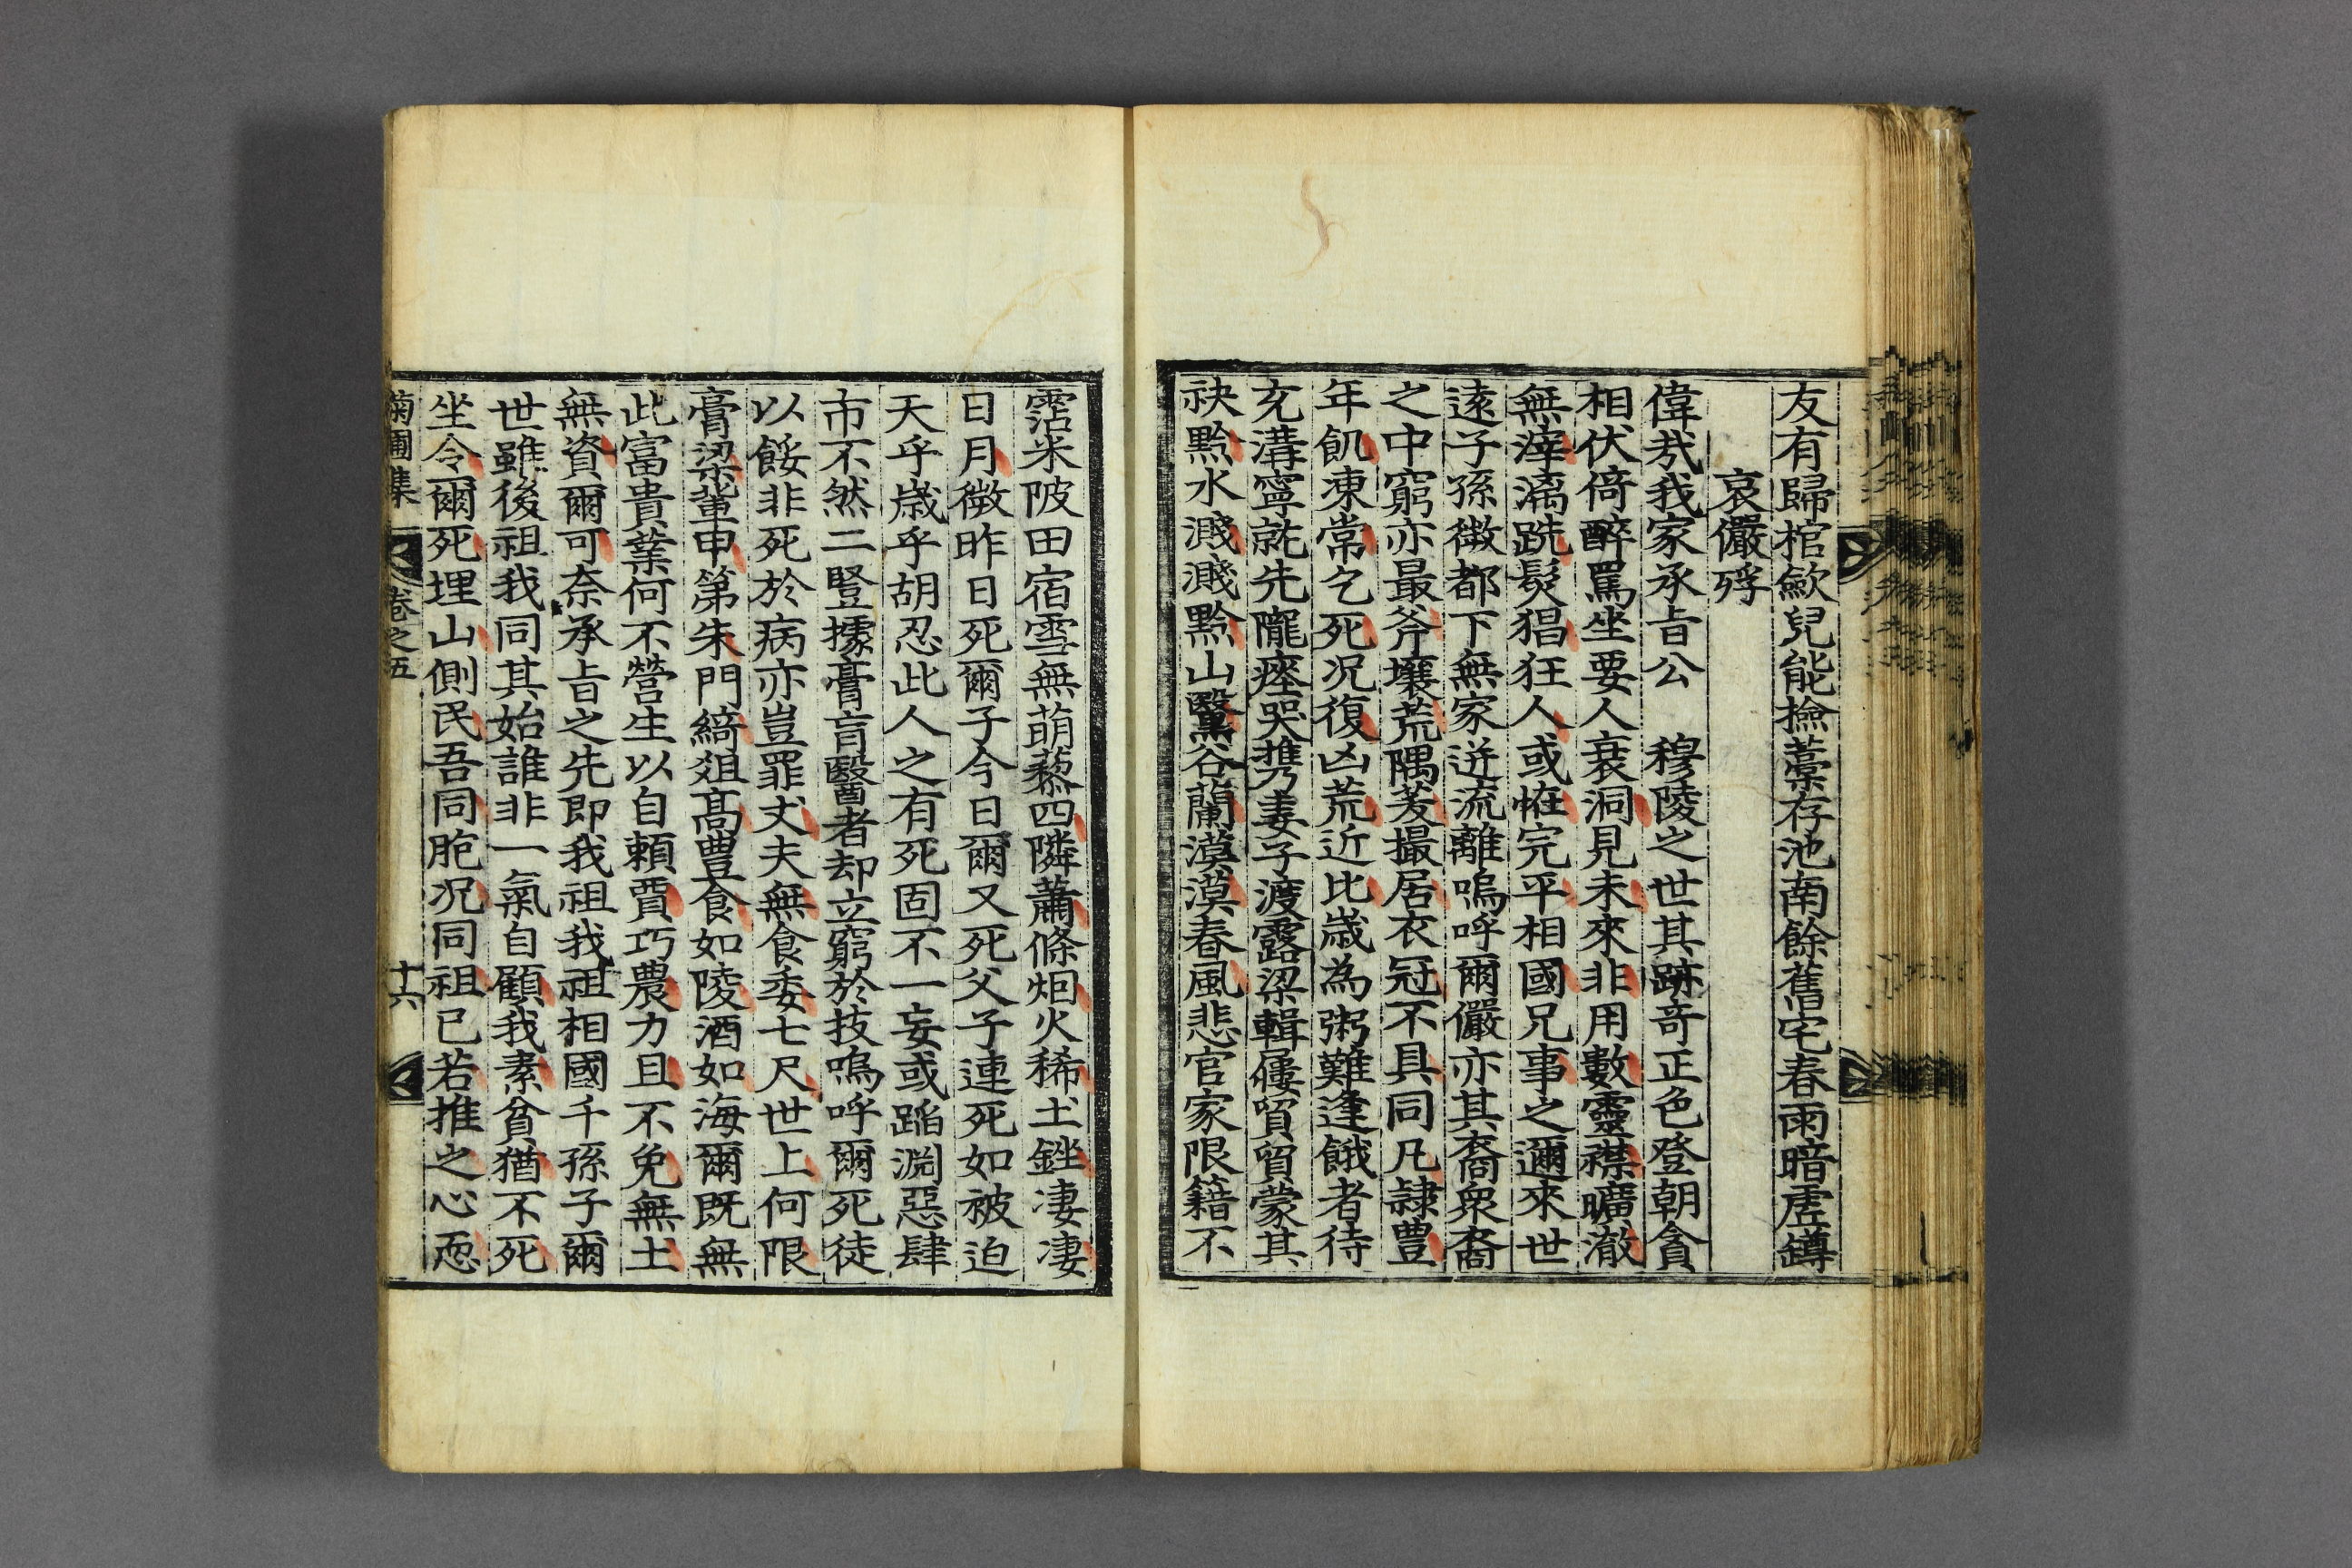 友有歸棺歛兒能撿藁存池南餘舊宅春雨暗虛罇
哀儼殍
偉㢤我家承旨公 穆陵之世其跡奇正色登朝貪
相伏倚醉罵坐要人衰洞見未來非用數靈襟曠澈
無滓漓跣髮猖狂人或恠完平相國兄事之邇來世
遠子孫微都下無家迸流離嗚呼爾儼亦其裔衆裔
之中窮亦最斧壤荒隅茇撮居衣冠不具同凡隷豊
年飢凍常乞死况復凶荒近比歲為粥難逢餓者待
充溝寧就先隴瘞哭携妻子渡露梁輯屨貿貿蒙其
袂黔水濺濺黔山翳谷蘭漠漠春風悲官家限籍不
霑米陂田宿雪無萌藜四隣蕭條烟火稀土銼凄凄
日月徴昨日死爾子今日爾又死父子連死如被迫
天乎歲乎胡忍此人之有死固不一妄或蹈淵惡肆
市不然二竪據膏肓醫者却立窮於技嗚呼爾死徒
以餒非死於病亦豈罪丈夫無食委七尺世上何限
膏粱輩甲第朱門綺爼高豊食如陵酒如海爾既無
此富貴業何不營生以自頼賈巧農力且不免無土
無資爾可奈承旨之先即我祖我祖相國千孫子爾
世雖後祖我同其始誰非一氣自顧我素貧猶不死
坐令爾死埋山側民吾同胞况同祖已若推之心恧
菊圃集 卷之五 十六